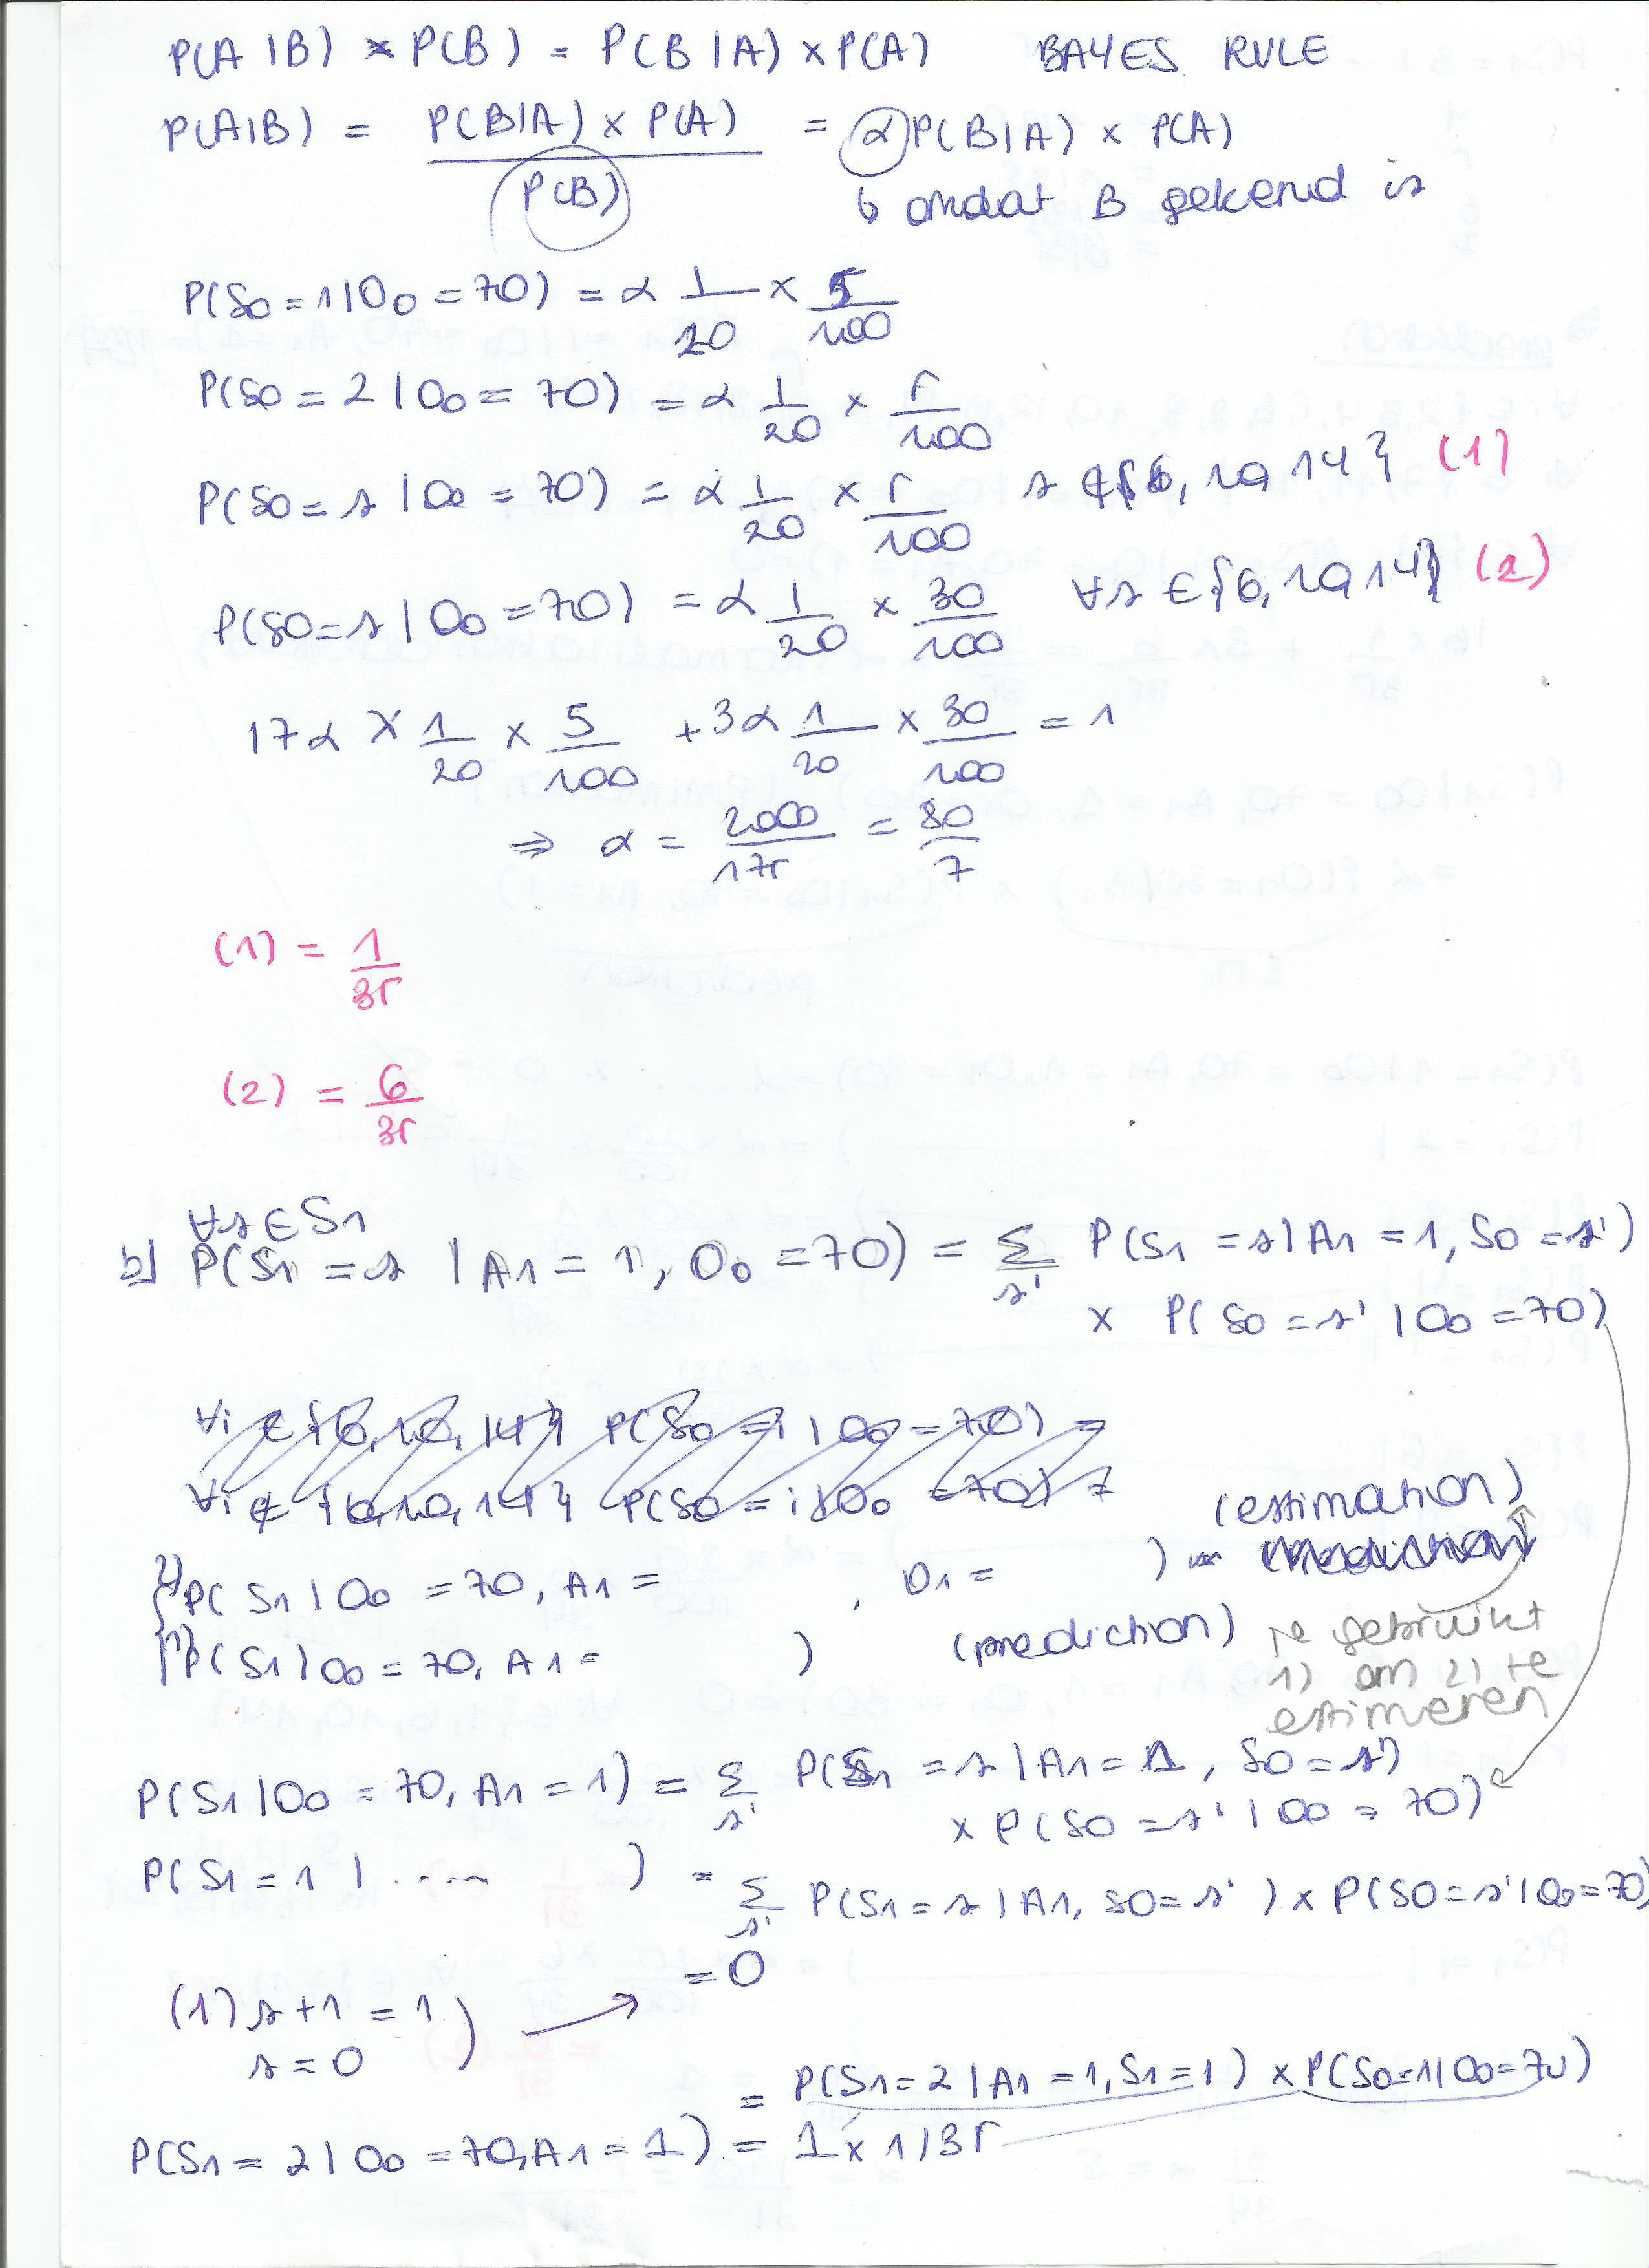 P(A|B) × P(B) = P(B|A) × P(A) BAYES RULE
P(A|B) = P(B|A) × P(A) / P(B) = α P(B|A) × P(A)
↳ omdat B gekend is
P(S0 = 1 | O0 = 70) = α 1/20 × 5/100
P(S0 = 2 | O0 = 70) = α 1/20 × 5/100
P(S0 = s | O0 = 70) = α 1/20 × 5/100 s ∉ {6, 10, 14} (1)
P(S0 = s | O0 = 70) = α 1/20 × 30/100 ∀s ∈ {6, 10, 14} (2)
17α × 1/20 × 5/100 + 3α 1/20 × 30/100 = 1
⇒ α = 2000/175 = 80/7
(1) = 1/35
(2) = 6/35
∀s ∈ S1
b) P(S1 = s | A1 = 1, O0 = 70) = Σs' P(S1 = s | A1 = 1, S0 = s')
× P(S0 = s' | O0 = 70)
∀i ∈ {6, 10, 14} P(S0 = i | O0 = 70) =
∀i ∉ {6, 10, 14} P(S0 = i | O0 = 70) =
(estimation)
2) P(S1 | O0 = 70, A1 = , O1 = )
1) P(S1 | O0 = 70, A1 = ) (prediction)
je gebruikt
1) om 2) te
estimeren
P(S1 | O0 = 70, A1 = 1) = Σs' P(S1 = s | A1 = 1, S0 = s')
× P(S0 = s' | O0 = 70)
P(S1 = 1 | ..... ) = Σs' P(S1 = s | A1, S0 = s') × P(S0 = s' | O0 = 70)
= 0
(1) s + 1 = 1
s = 0
= P(S1 = 2 | A1 = 1, S1 = 1) × P(S0 = 1 | O0 = 70)
P(S1 = 2 | O0 = 70, A1 = 1) = 1 × 1/35